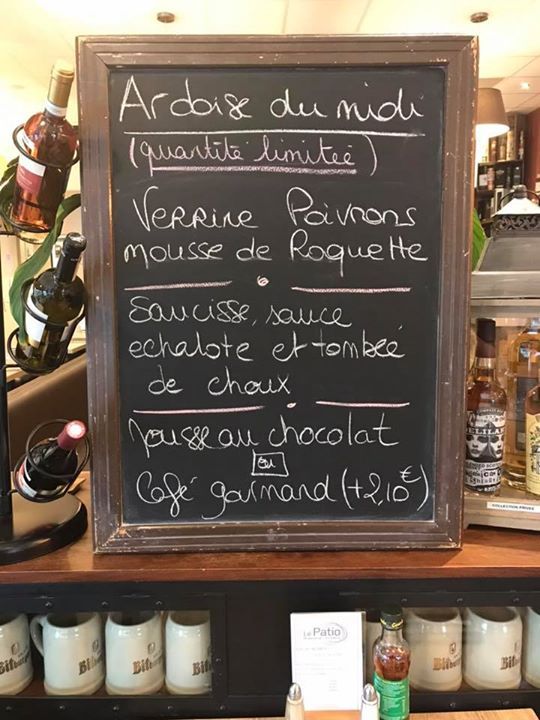 Ardoise du midi
(quantité limitée)
Verrine Poivrons
mousse de Roquette
Saucisse, sauce
echalote et tombée
de choux
Mousse au chocolat
ou
Café gourmand (+2,10€)
COLLECTION PRIVEE
Le Patio
Bitburger